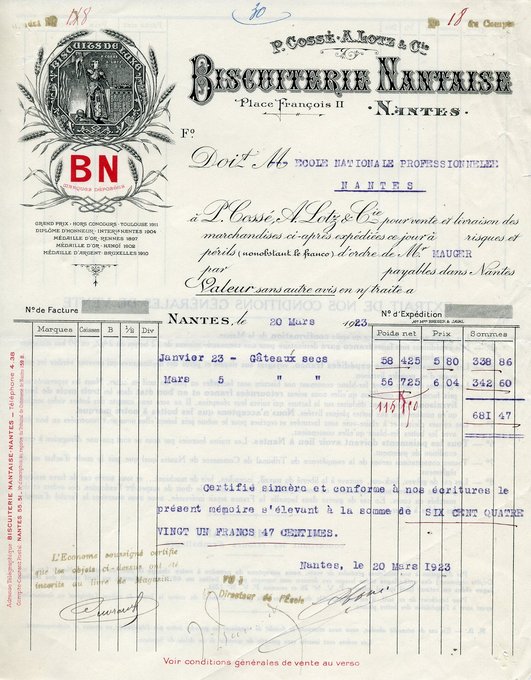 18
30
No 18 du Compte
BISCUITS DE LUXE
P. COSSÉ · A. LOTZ & Cie
BISCUITERIE NANTAISE
Place François II
NANTES.
Fo
BN
MARQUES DÉPOSÉES
Doit M ECOLE NATIONALE PROFESSIONNELLE
NANTES
GRAND PRIX - HORS CONCOURS - TOULOUSE 1911
DIPLÔME D'HONNEUR - INTERle NANTES 1904
MÉDAILLE D'OR - RENNES 1897
MÉDAILLE D'OR - HANOÏ 1902
MÉDAILLE D'ARGENT - BRUXELLES 1910
à P. Cossé, A. Lotz & Cie pour vente et livraison des
marchandises ci-après expédiées ce jour à risques et
périls (nonobstant le franco) d'ordre de Mr MAUGER
par payables dans Nantes
Valeur sans autre avis en n/ traite à
No de Facture
No d'Expédition
NANTES, le 20 Mars 1923
Marques Caisses B 1/2 Div
Poids net Prix Sommes
Janvier 23 - Gâteaux secs 58 425 5 80 338 86
Mars 5 " " 56 725 6 04 342 60
681 47
Certifié sincère et conforme à nos écritures le
présent mémoire s'élevant à la somme de SIX CENT QUATRE
VINGT UN FRANCS 47 CENTIMES.
Nantes, le 20 Mars 1923
L'Econome soussigné certifie
que les objets ci-dessus ont été
inscrits au livre de Magasin.
VU :
Le Directeur de l'École
Voir conditions générales de vente au verso
Adresse Télégraphique BISCUITERIE NANTAISE-NANTES - Téléphone 4.38
Compte Courant Postal: NANTES 55.51.